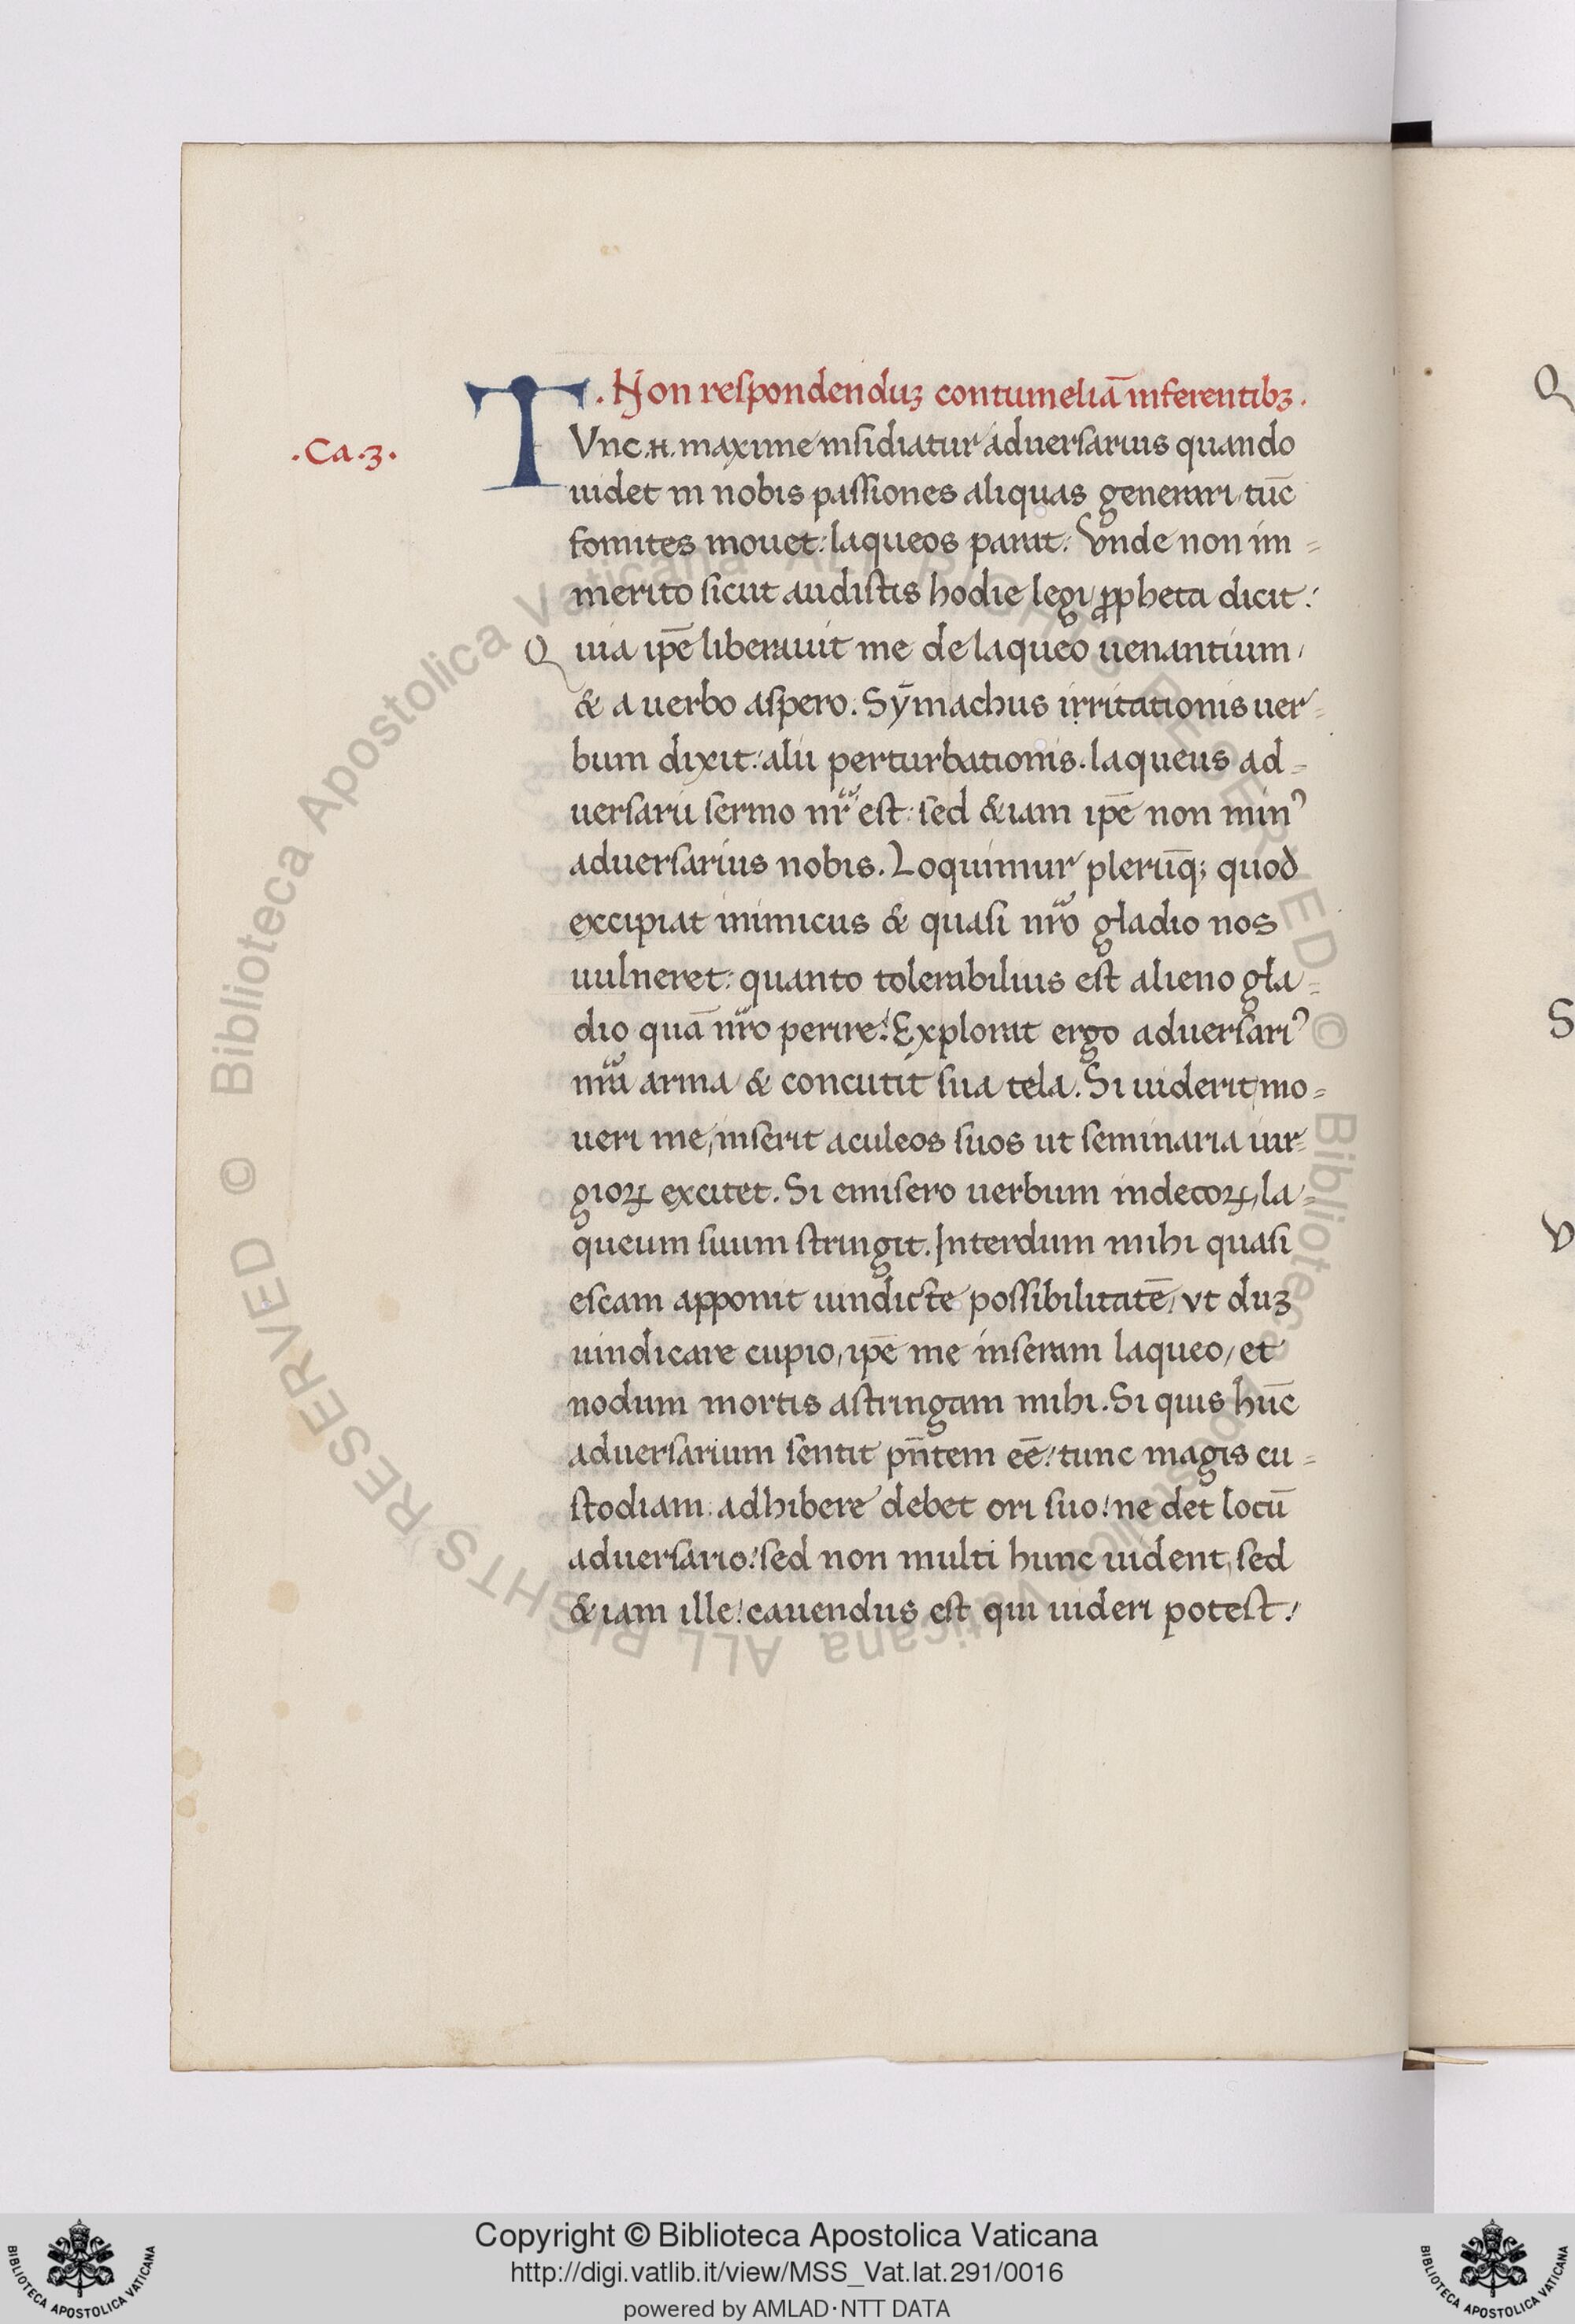 . Non respondenduꝫ contumeliā inferentibꝫ.
.Ca.3.
TVnc.n. maxime insidiatur aduersarius quando
uidet in nobis passiones aliquas generari, tūc
fomites mouet: laqueos parat. Vnde non im=
merito sicut audistis hodie legi, ꝓpheta dicit:
Quia ip̄e liberauit me de laqueo uenantium,
& a uerbo aspero. Sȳmachus irritationis uer=
bum dixit: alii perturbationis. laqueus ad=
uersarii sermo nr̄ est: sed &iam ip̄e non minꝰ
aduersarius nobis. Loquimur plerūqꝫ quod
excipiat inimicus & quasi nr̄o gladio nos
uulneret: quanto tolerabilius est alieno gla=
dio quā nr̄o perire! Explorat ergo aduersariꝰ
nr̄a arma & concutit sua tela. Si uiderit, mo=
ueri me, inserit aculeos suos ut seminaria iur=
gioꝝ excitet. Si emisero uerbum indecoꝝ, la=
queum suum stringit. Interdum mihi quasi
escam apponit uindicte possibilitatē, vt duꝫ
uindicare cupio, ip̄e me inseram laqueo, et
nodum mortis astringam mihi. Si quis hūc
aduersarium sentit pn̄tem eē: tunc magis cu=
stodiam adhibere debet ori suo: ne det locū
aduersario: sed non multi hunc uident, sed
&iam ille: cauendus est qui uideri potest:
Q
S
V
© Biblioteca Apostolica Vaticana ALL RIGHTS RESERVED © Biblioteca Apostolica Vaticana ALL RIGHTS RESERVED
Copyright © Biblioteca Apostolica Vaticana
http://digi.vatlib.it/view/MSS_Vat.lat.291/0016
powered by AMLAD·NTT DATA
BIBLIOTECA APOSTOLICA VATICANA
BIBLIOTECA APOSTOLICA VATICANA